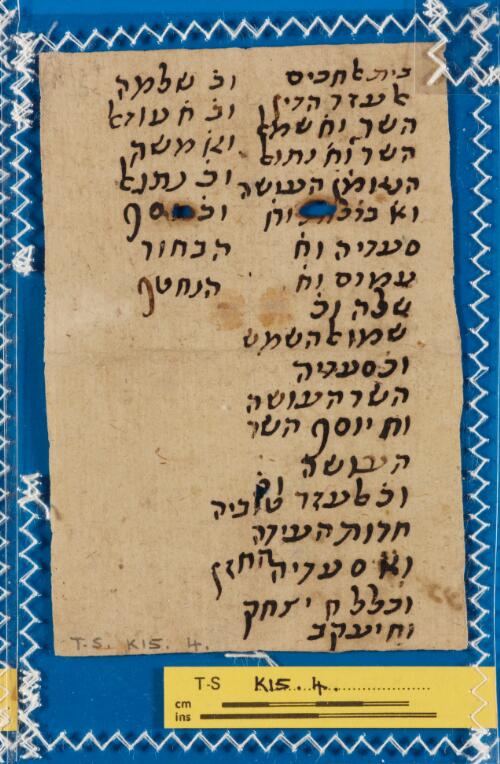 בית אחבים
אלעזר הדיין
השר וח שמלא
השר וח נתנא
הנאמן העושה
וא
סעדיה וח
עמוס וח
שלה וכ
שמואל השמש
וכ סעדיה
השר העושה
וח יוסף השר
העושה
וכ אלעזר טוביה וכ
חדות העידה
וא סעדיה החזן
וכלל ח יצחק
וח יעקב
וכ שלמה
וכ ח עולא
וא משק
וכ נתנא
וכ יוסף
הבחור
הנחטף
T-S. K15. 4.
T-S K15. 4.
cm
ins